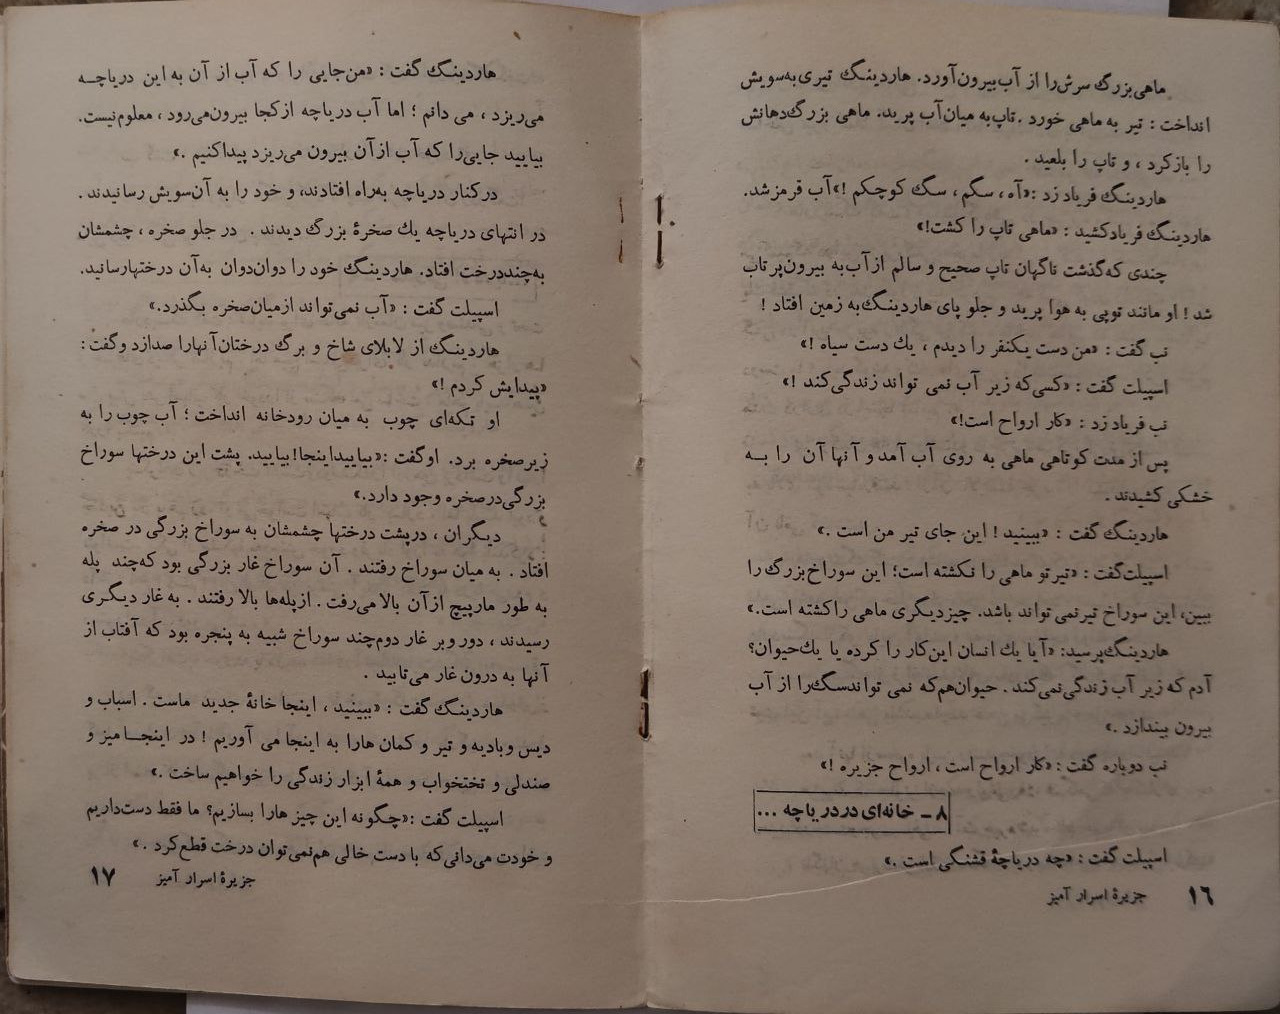 ماهی بزرگ سرش را از آب بیرون آورد. هاردینگ تیری به سویش
انداخت : تیر به ماهی خورد . تاپ به میان آب پرید. ماهی بزرگ دهانش
را باز کرد ، و تاپ را بلعید .
هاردینگ فریاد زد : «آه ، سگم ، سگ کوچکم !» آب قرمز شد.
هاردینگ فریاد کشید : «ماهی تاپ را کشت!»
چندی که گذشت ناگهان تاپ صحیح و سالم از آب به بیرون پرتاب
شد ! او مانند توپی به هوا پرید و جلو پای هاردینگ به زمین افتاد !
نب گفت : «من دست یکنفر را دیدم ، یك دست سیاه !»
اسپیلت گفت : «کسی که زیر آب نمی تواند زندگی کند !»
نب فریاد زد : «کار ارواح است!»
پس از مدت کوتاهی ماهی به روی آب آمد و آنها آن را به
خشکی کشیدند .
هاردینگ گفت : «ببینید ! این جای تیر من است .»
اسپیلت گفت : «تیر تو ماهی را نکشته است؛ این سوراخ بزرگ را
ببین، این سوراخ تیر نمی تواند باشد. چیز دیگری ماهی را کشته است.»
هاردینگ پرسید: «آیا یك انسان این کار را کرده یا یك حیوان؟
آدم که زیر آب زندگی نمی کند . حیوان هم که نمی تواند سگ را از آب
بیرون بیندازد .»
نب دوباره گفت : «کار ارواح است ، ارواح جزیره !»
۸ - خانه‌ای در دریاچه ...
اسپیلت گفت : «چه دریاچهٔ قشنگی است .»
۱۶ جزیرهٔ اسرار آمیز
هاردینگ گفت : «من جایی را که آب از آن به این دریاچه
می‌ریزد ، می دانم ؛ اما آب دریاچه از کجا بیرون می‌رود ، معلوم نیست.
بیایید جایی را که آب از آن بیرون می‌ریزد پیدا کنیم .»
در کنار دریاچه به‌راه افتادند، و خود را به آن سویش رسانیدند .
در انتهای دریاچه یك صخرهٔ بزرگ دیدند . در جلو صخره ، چشمشان
به چند درخت افتاد. هاردینگ خود را دوان‌دوان به آن درختها رسانید.
اسپیلت گفت : «آب نمی تواند از میان صخره بگذرد.»
هاردینگ از لابلای شاخ و برگ درختان آنها را صدا زد و گفت :
«پیدایش کردم !»
او تکه‌ای چوب به میان رودخانه انداخت ؛ آب چوب را به
زیر صخره برد. او گفت : «بیایید اینجا! بیایید. پشت این درختها سوراخ
بزرگی در صخره وجود دارد.»
دیگران ، در پشت درختها چشمشان به سوراخ بزرگی در صخره
افتاد . به میان سوراخ رفتند . آن سوراخ غار بزرگی بود که چند پله
به طور مارپیچ از آن بالا می‌رفت . از پله‌ها بالا رفتند . به غار دیگری
رسیدند ، دور و بر غار دوم چند سوراخ شبیه به پنجره بود که آفتاب از
آنها به درون غار می‌تابید .
هاردینگ گفت : «ببینید ، اینجا خانهٔ جدید ماست . اسباب و
دیس و بادیه و تیر و کمان هارا به اینجا می آوریم ! در اینجا میز و
صندلی و تختخواب و همهٔ ابزار زندگی را خواهیم ساخت .»
اسپیلت گفت : «چگونه این چیز هارا بسازیم؟ ما فقط دست داریم
و خودت می‌دانی که با دست خالی هم نمی‌توان درخت قطع کرد .»
جزیرهٔ اسرار آمیز ۱۷